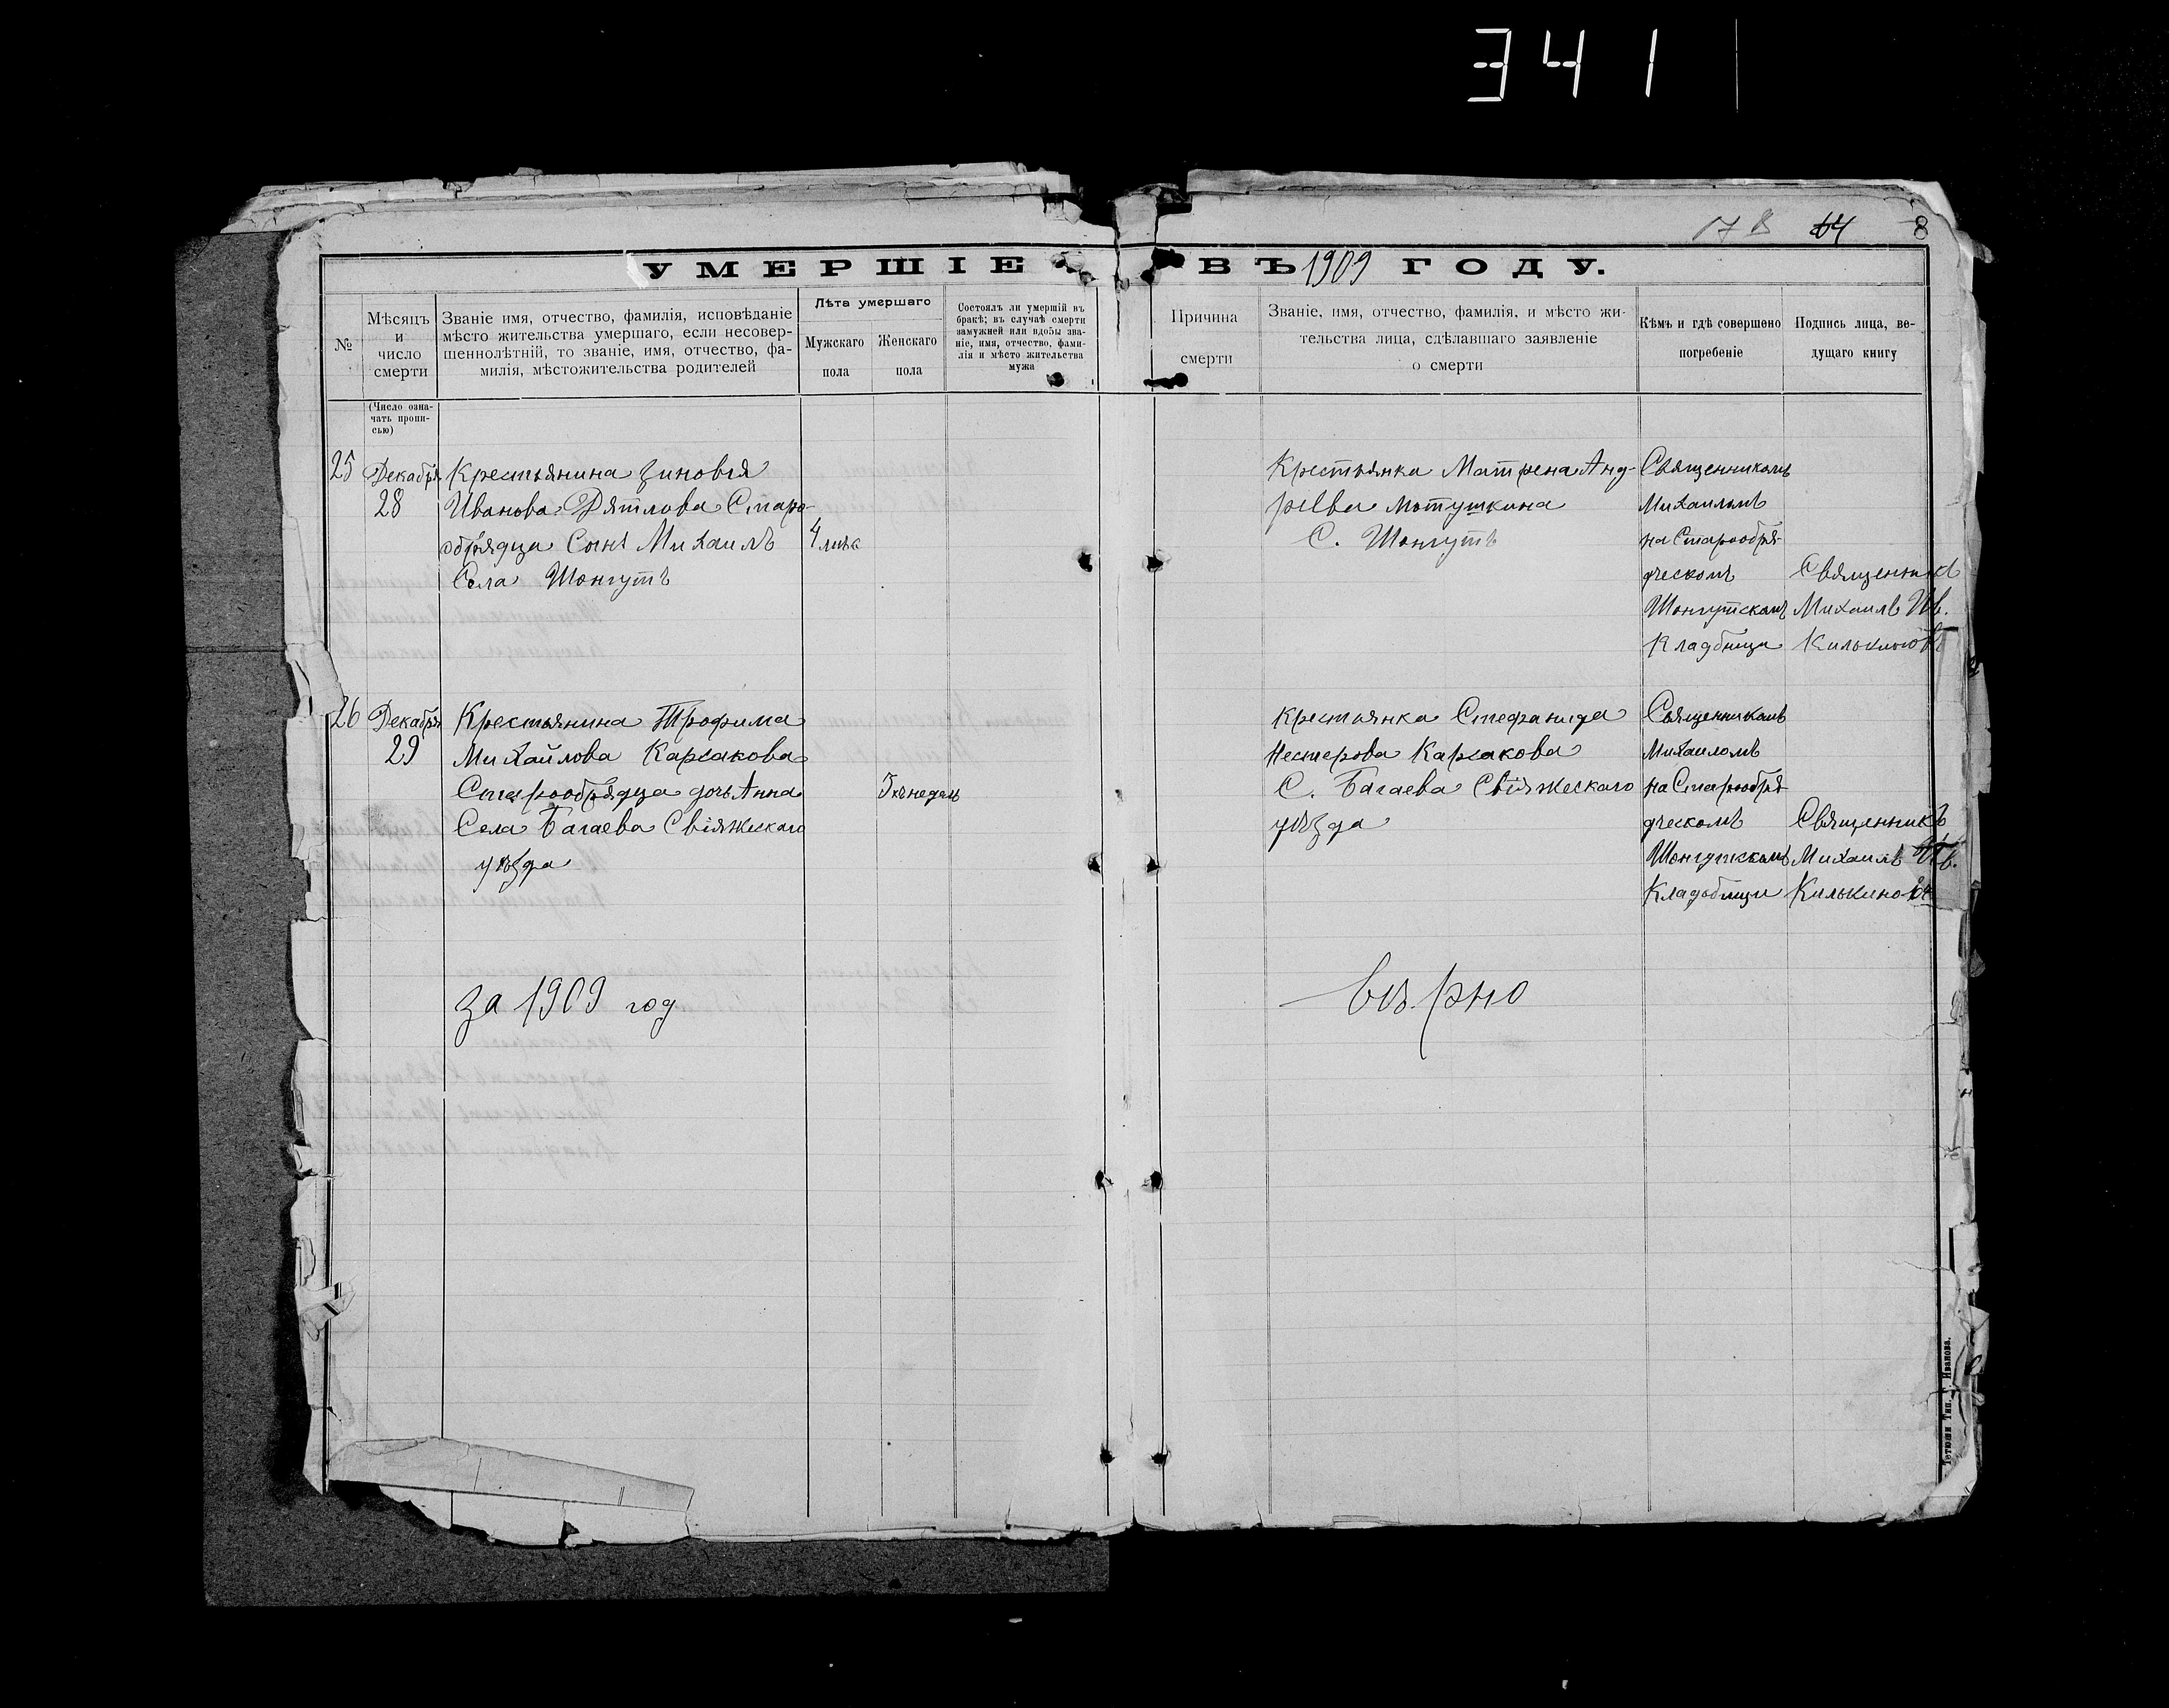 341
17 8 64 8
УМЕРШІЕ ВЪ 1909 ГОДУ.
№
Мѣсяцъ
и
число
смерти
Званіе имя, отчество, фамилія, исповѣданіе
мѣсто жительства умершаго, если несовер-
шеннолѣтній, то званіе, имя, отчество, фа-
милія, мѣстожительства родителей
Лѣта умершаго
Мужскаго
пола
Женскаго
пола
Состоялъ ли умершій въ
бракѣ; въ случаѣ смерти
замужней или вдовы зва-
ніе, имя, отчество, фами-
лія и мѣсто жительства
мужа
Причина
смерти
Званіе, имя, отчество, фамилія, и мѣсто жи-
тельства лица, сдѣлавшаго заявленіе
о смерти
Кѣмъ и гдѣ совершено
погребеніе
Подпись лица, ве-
дущаго книгу
(Число озна-
чать пропи-
сью)
25
Декабря
28
Крестьянина Зиновья
Иванова Дятлова Старо-
обрядца Сынъ Михаилъ
Села Шонгутъ
4 лѣта
Крестьянка Матрена Анд-
реева Мотушкина
С. Шонгутъ
Священникомъ
Михаиломъ
на Старообря-
дческомъ
Шонгутскомъ
Кладбище
Священникъ
Михаилъ Ив.
Килькиновъ
26
Декабря
29
Крестьянина Трофима
Михайлова Карсакова
Старообрядца дочь Анна
Села Багаева Свіяжскаго
уѣзда
5 хъ недель
Крестьянка Стефанида
Нестерова Карсакова
С. Багаева Свіяжескаго
уѣзда
Священникомъ
Михаиломъ
на Старообря-
дческомъ
Шонгутскомъ
Кладобище
Священникъ
Михаилъ Ив.
Килькиновъ
За 1909 год
Вѣрно
Тетюши Тип. Иванова.